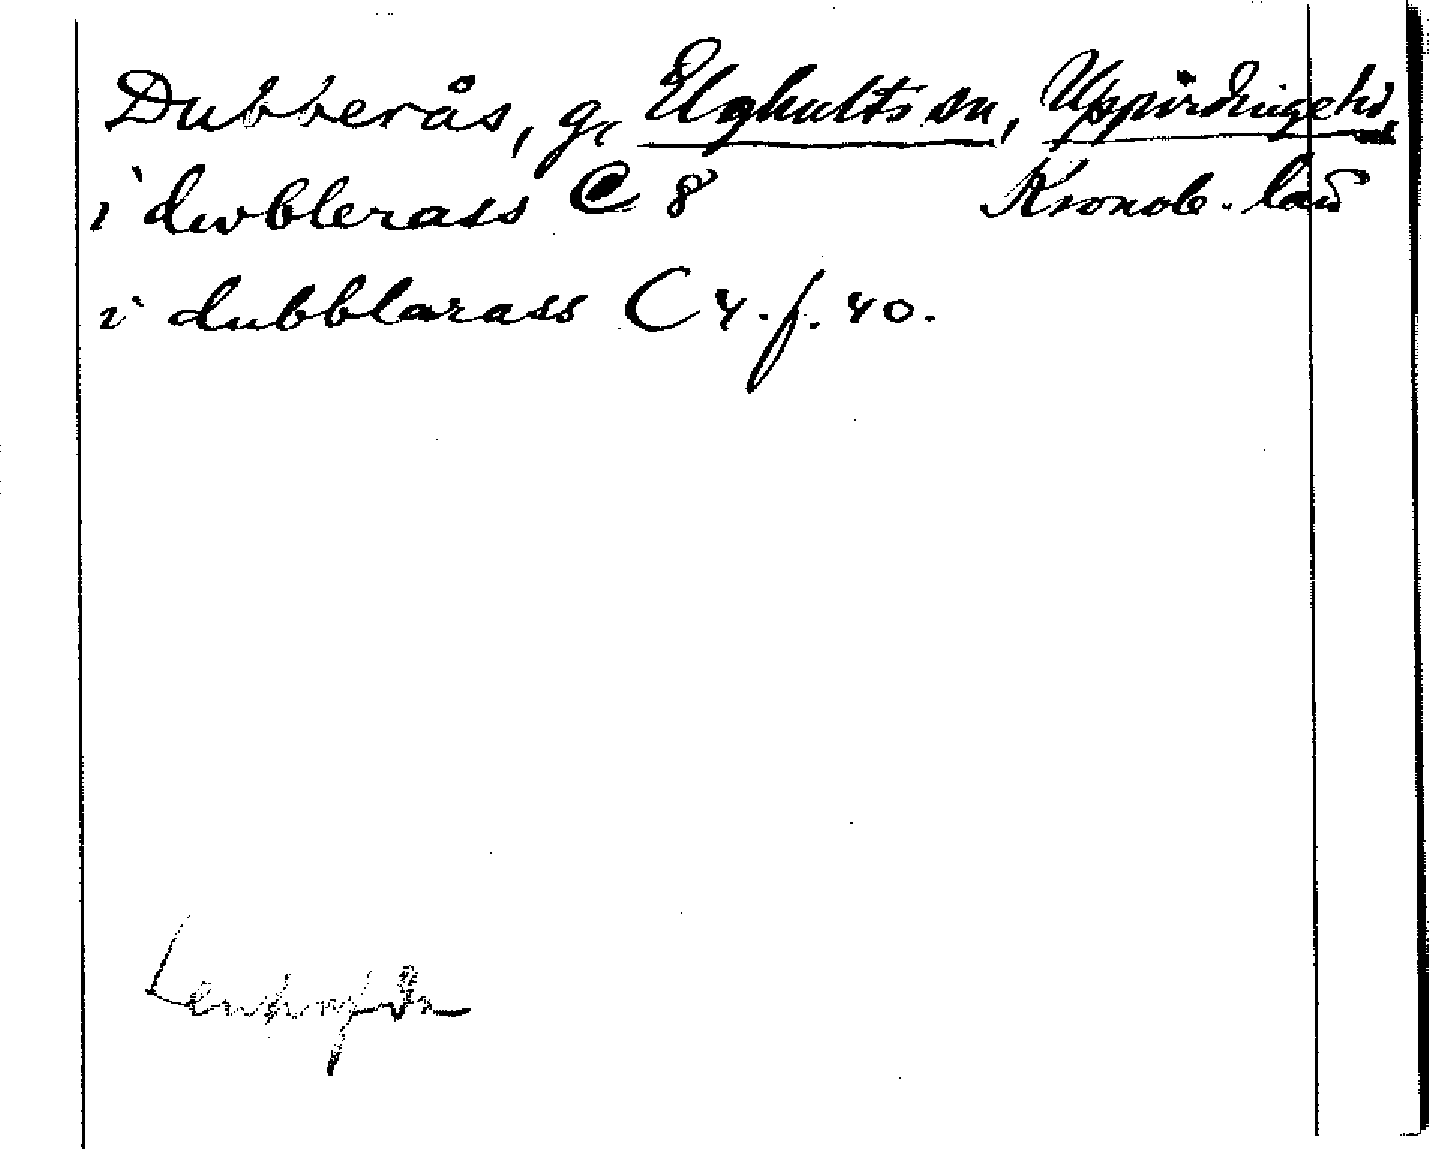 Dubberås, g, Elghults sn, Uppvidinge hd,
i dwblerass C 8 Kronob. län
i dubblarass C 4. f. 40.